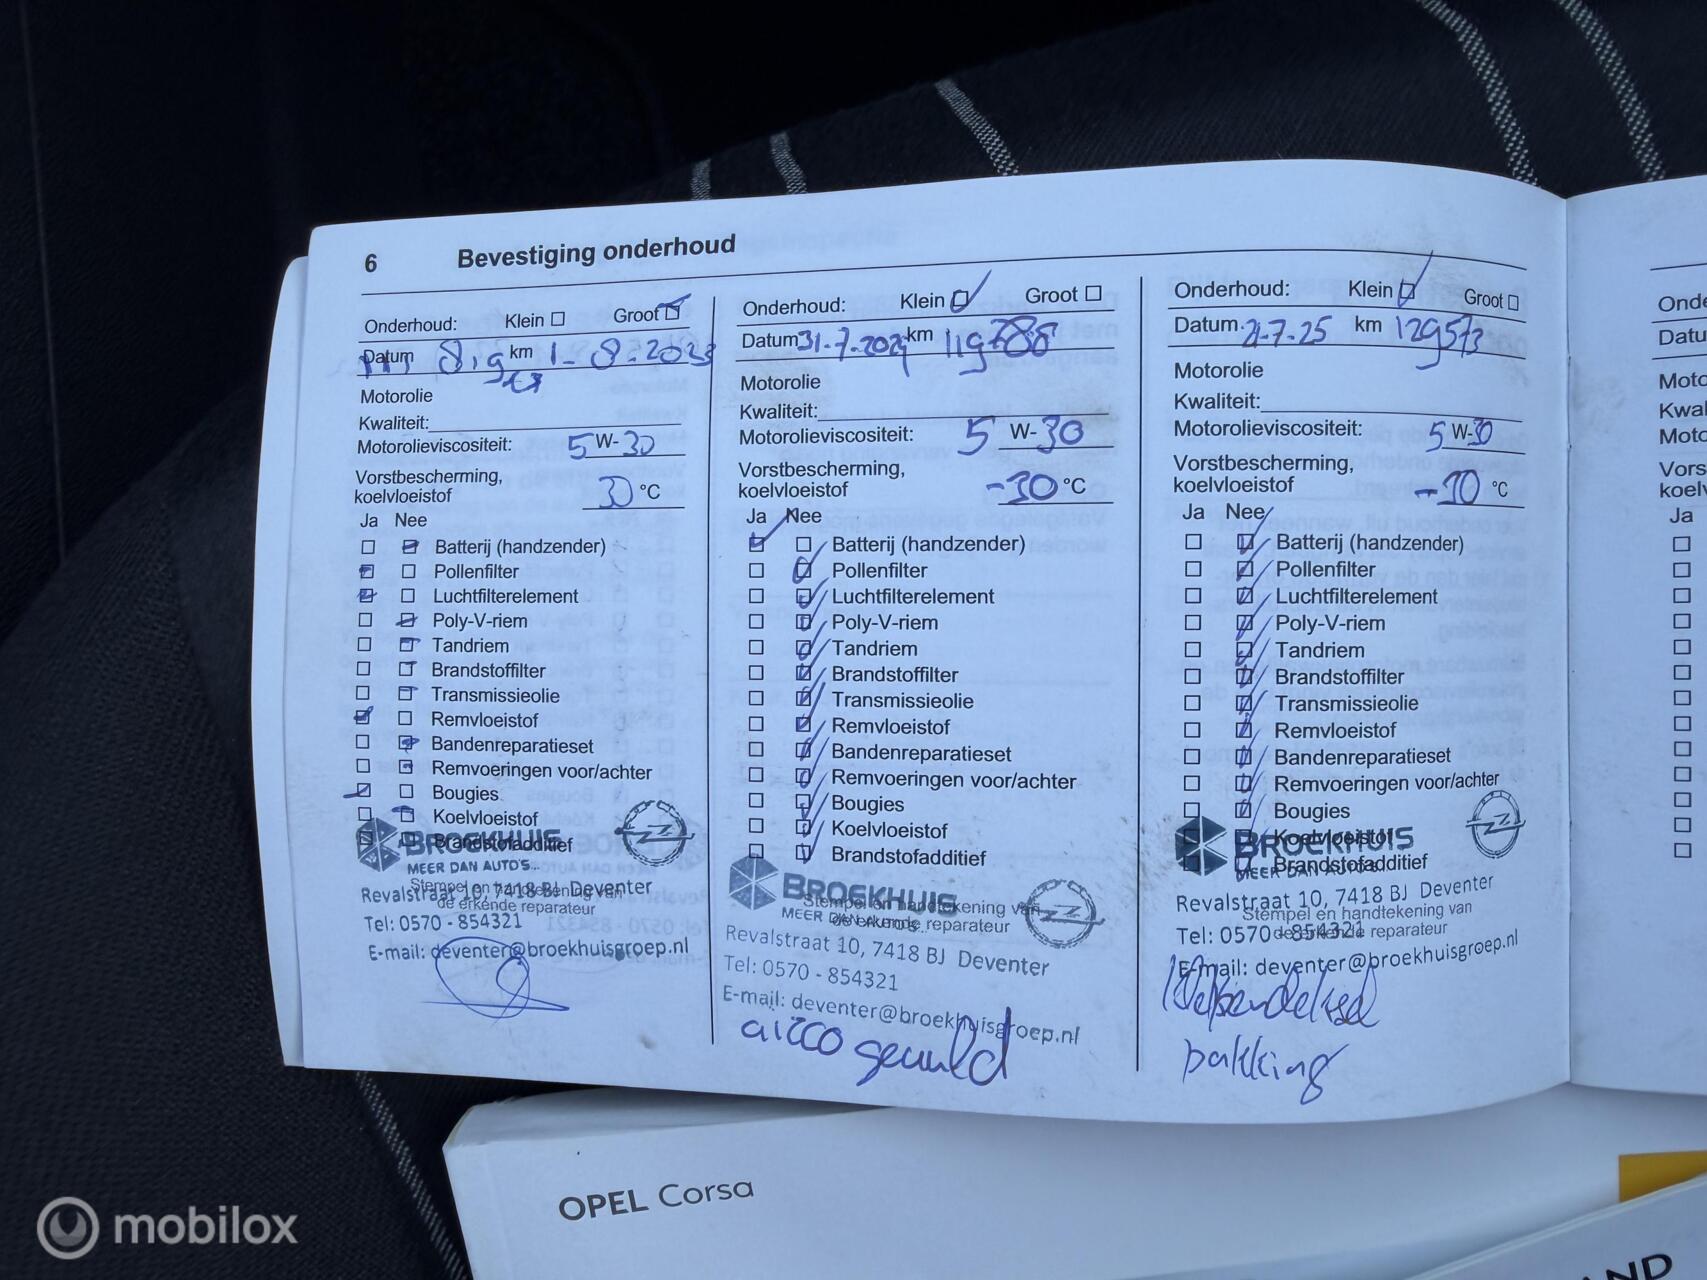 6 Bevestiging onderhoud
Onderhoud: Klein Groot
Datum km 1-8-2023
Motorolie
Kwaliteit:
Motorolieviscositeit: 5 W-30
Vorstbescherming,
koelvloeistof 30 °C
Ja Nee
Batterij (handzender)
Pollenfilter
Luchtfilterelement
Poly-V-riem
Tandriem
Brandstoffilter
Transmissieolie
Remvloeistof
Bandenreparatieset
Remvoeringen voor/achter
Bougies
Koelvloeistof
Brandstofadditief
BROEKHUIS
MEER DAN AUTO'S...
Stempel en handtekening van
de erkende reparateur
Revalstraat 10, 7418 BJ Deventer
Tel: 0570 - 854321
E-mail: deventer@broekhuisgroep.nl
Onderhoud: Klein Groot
Datum 31-7-2024 km
Motorolie
Kwaliteit:
Motorolieviscositeit: 5 W-30
Vorstbescherming,
koelvloeistof -30 °C
Ja Nee
Batterij (handzender)
Pollenfilter
Luchtfilterelement
Poly-V-riem
Tandriem
Brandstoffilter
Transmissieolie
Remvloeistof
Bandenreparatieset
Remvoeringen voor/achter
Bougies
Koelvloeistof
Brandstofadditief
BROEKHUIS
MEER DAN AUTO'S...
Stempel en handtekening van
de erkende reparateur
Revalstraat 10, 7418 BJ Deventer
Tel: 0570 - 854321
E-mail: deventer@broekhuisgroep.nl
airco gevuld
Onderhoud: Klein Groot
Datum 21-7-25 km 129573
Motorolie
Kwaliteit:
Motorolieviscositeit: 5 W-30
Vorstbescherming,
koelvloeistof °C
Ja Nee
Batterij (handzender)
Pollenfilter
Luchtfilterelement
Poly-V-riem
Tandriem
Brandstoffilter
Transmissieolie
Remvloeistof
Bandenreparatieset
Remvoeringen voor/achter
Bougies
Koelvloeistof
Brandstofadditief
BROEKHUIS
MEER DAN AUTO'S...
Revalstraat 10, 7418 BJ Deventer
Stempel en handtekening van
de erkende reparateur
Tel: 0570 - 854321
E-mail: deventer@broekhuisgroep.nl
Klependeksel
pakking
Onde
Datu
Moto
Kwal
Moto
Vors
koelv
Ja
OPEL Corsa
AND
mobilox